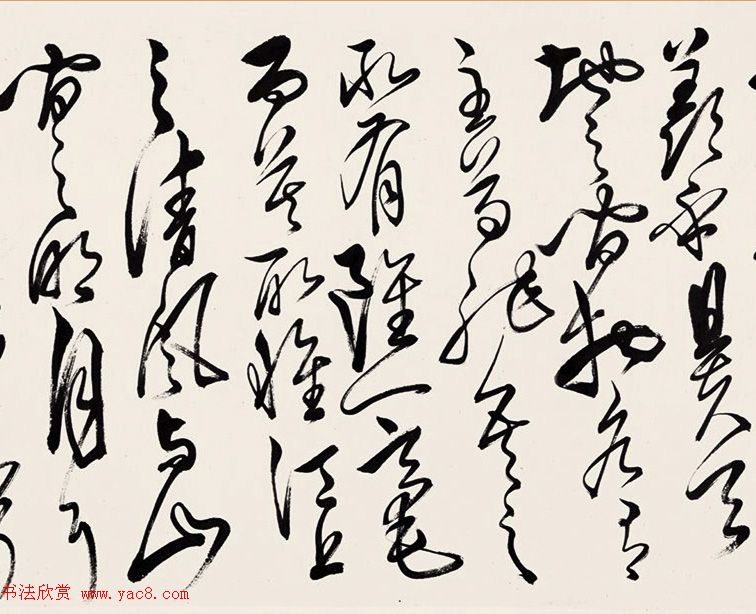 羨乎且夫天
地之間物各有
主苟非吾之
所有雖一毫
而莫取惟江上
之清風与山
間之明月耳
书法欣赏 www.yac8.com